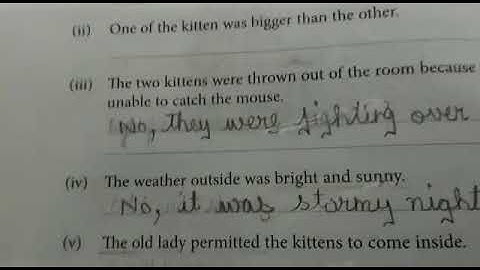 (ii) One of the kitten was bigger than the other.
(iii) The two kittens were thrown out of the room because
unable to catch the mouse.
No, they were fighting over
(iv) The weather outside was bright and sunny.
No, it was stormy night
(v) The old lady permitted the kittens to come inside.